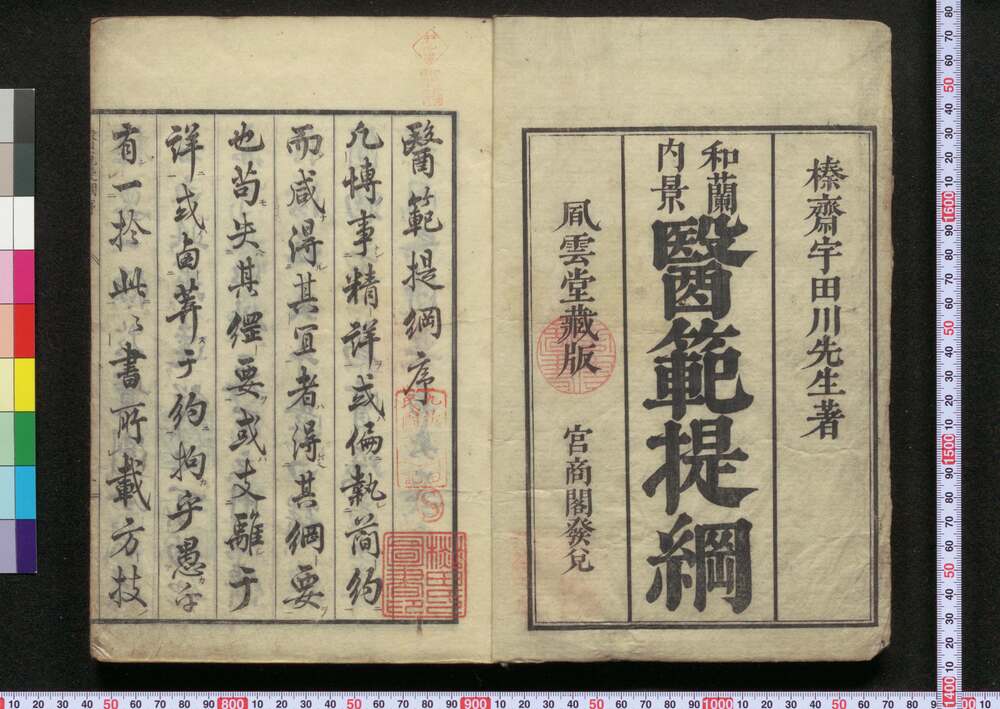 榛齋宇田川先生著
和蘭
内景
醫範提綱
風雲堂藏版 官商閣發兌
醫範提綱序
凡博事精詳或偏執簡約
而咸得其宜者得其綱要
也苟失其綱要或支離于
詳或鹵莽于約拘乎愚
有一於此書所載方技